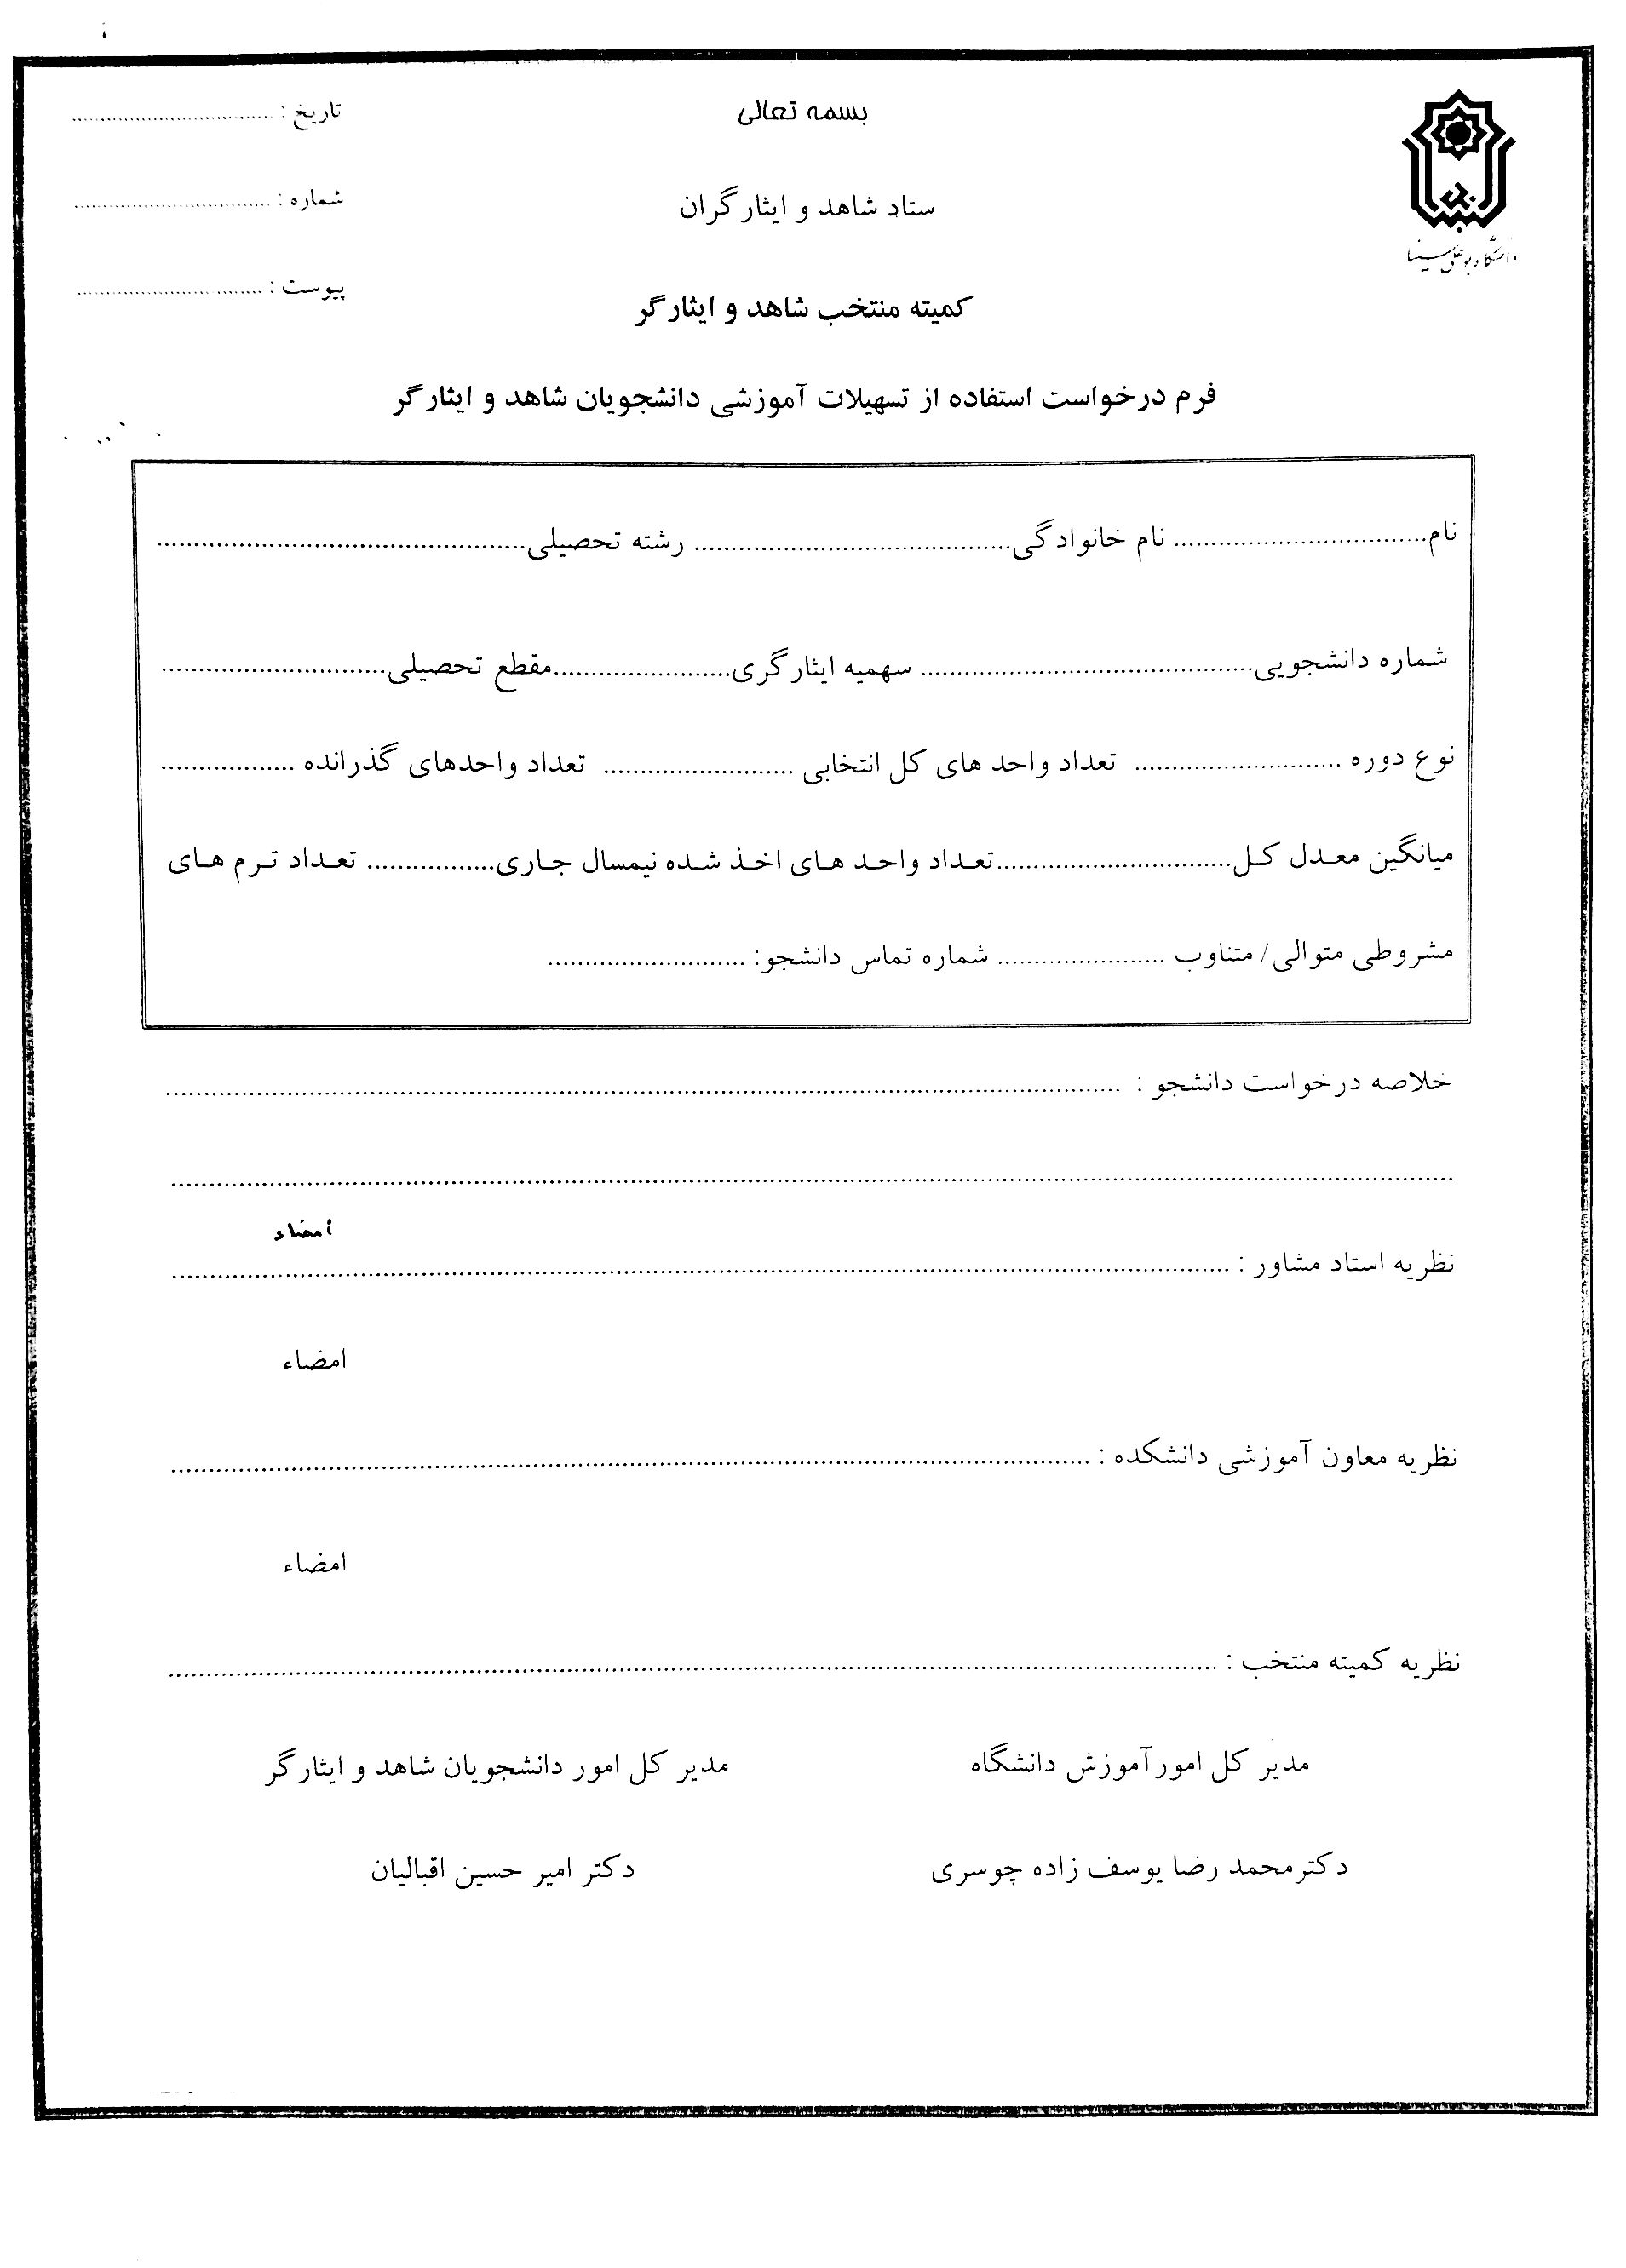 بسمه تعالی
تاریخ : ..............................
دانشگاه بوعلی سینا
ستاد شاهد و ایثارگران
شماره : ..............................
کمیته منتخب شاهد و ایثارگر
پیوست : ..............................
فرم درخواست استفاده از تسهیلات آموزشی دانشجویان شاهد و ایثارگر
نام.................................. نام خانوادگی.......................................... رشته تحصیلی.................................................
شماره دانشجویی............................................. سهمیه ایثارگری........................مقطع تحصیلی..............................
نوع دوره ............................ تعداد واحد های کل انتخابی ......................... تعداد واحدهای گذرانده ..................
میانگین معدل کل...............................تعداد واحد های اخذ شده نیمسال جاری................. تعداد ترم های
مشروطی متوالی/ متناوب ...................... شماره تماس دانشجو: ..........................
خلاصه درخواست دانشجو : ..............................................................................................................
......................................................................................................................................................
امضاء
نظریه استاد مشاور : ..............................................................................................................
امضاء
نظریه معاون آموزشی دانشکده : ..............................................................................................................
امضاء
نظریه کمیته منتخب : ..............................................................................................................
مدیر کل امورآموزش دانشگاه مدیر کل امور دانشجویان شاهد و ایثارگر
دکترمحمد رضا یوسف زاده چوسری دکتر امیر حسین اقبالیان